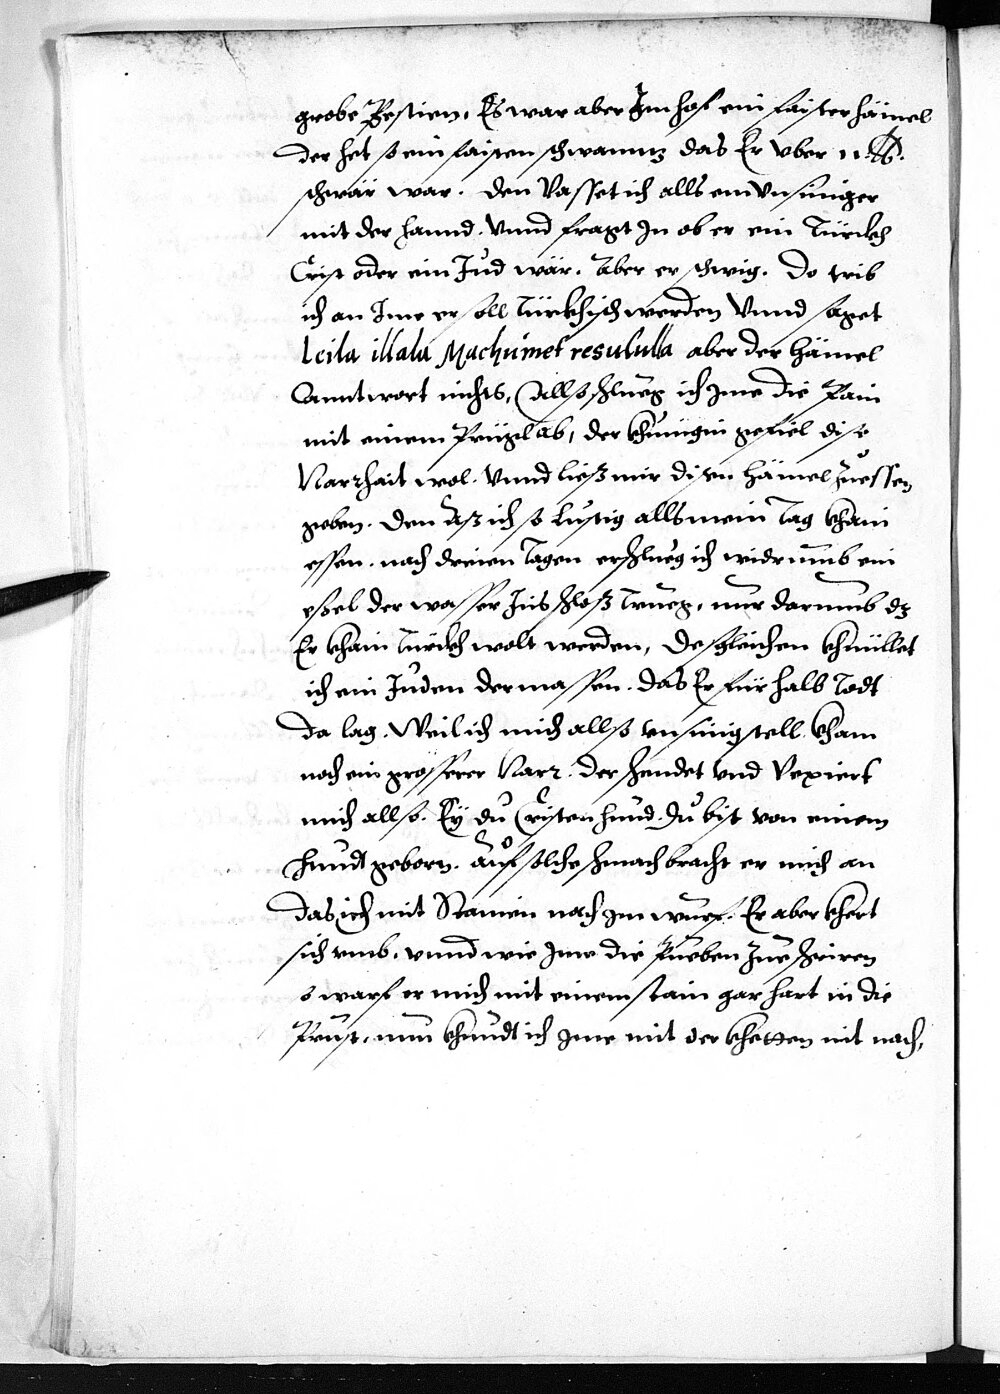 grobe Bestien, Es war aber Im hof ein faister hämel
der het so ein faisten schwanntz das Er vber 11 ℔.
schwär war. den Vasset ich alls ein Vnsiniger
mit der hannd. Vnnd fragt In ob er ein Türckh
Crist oder ein Jud wär. Aber er schwig. Do trib
ich an Ime er soll Türkhisch werden Vnnd saget
Leila illala Machumet resululla aber der hämel
Anntwort nichts, Allso schlueg ich Ime die Pain
mit einem Prügl ab, der Khunigin gefiel dise
Narrhait wol. Vnnd ließ mir disen hämel zuessen
geben. den aß ich so lustig alls mein tag khain
essen. nach dreien tagen erschlueg ich widrumb ein
esel der wasser Ins schloß trueg, nur darumb dz
Er khain Türckh wolt werden, desgleichen khnüllet
ich ein Juden dermassen. das Er für halb todt
da lag. Weil ich mich allso vnsinig stell kham
noch ein grösserer Narr. der schendet vnd Vexiert
mich allso. Ey du Cristen hund. Du bist von einem
hundt geborn. Auf solche schmach bracht er mich an
das ich mit Stainen nach Im wurf. Er aber khert
sich vmb. vnnd wie Ime die Pueben zue schriren
so warf er mich mit einem stain gar hart in die
Prust. nun khundt ich Ime mit der khetten nit nach,